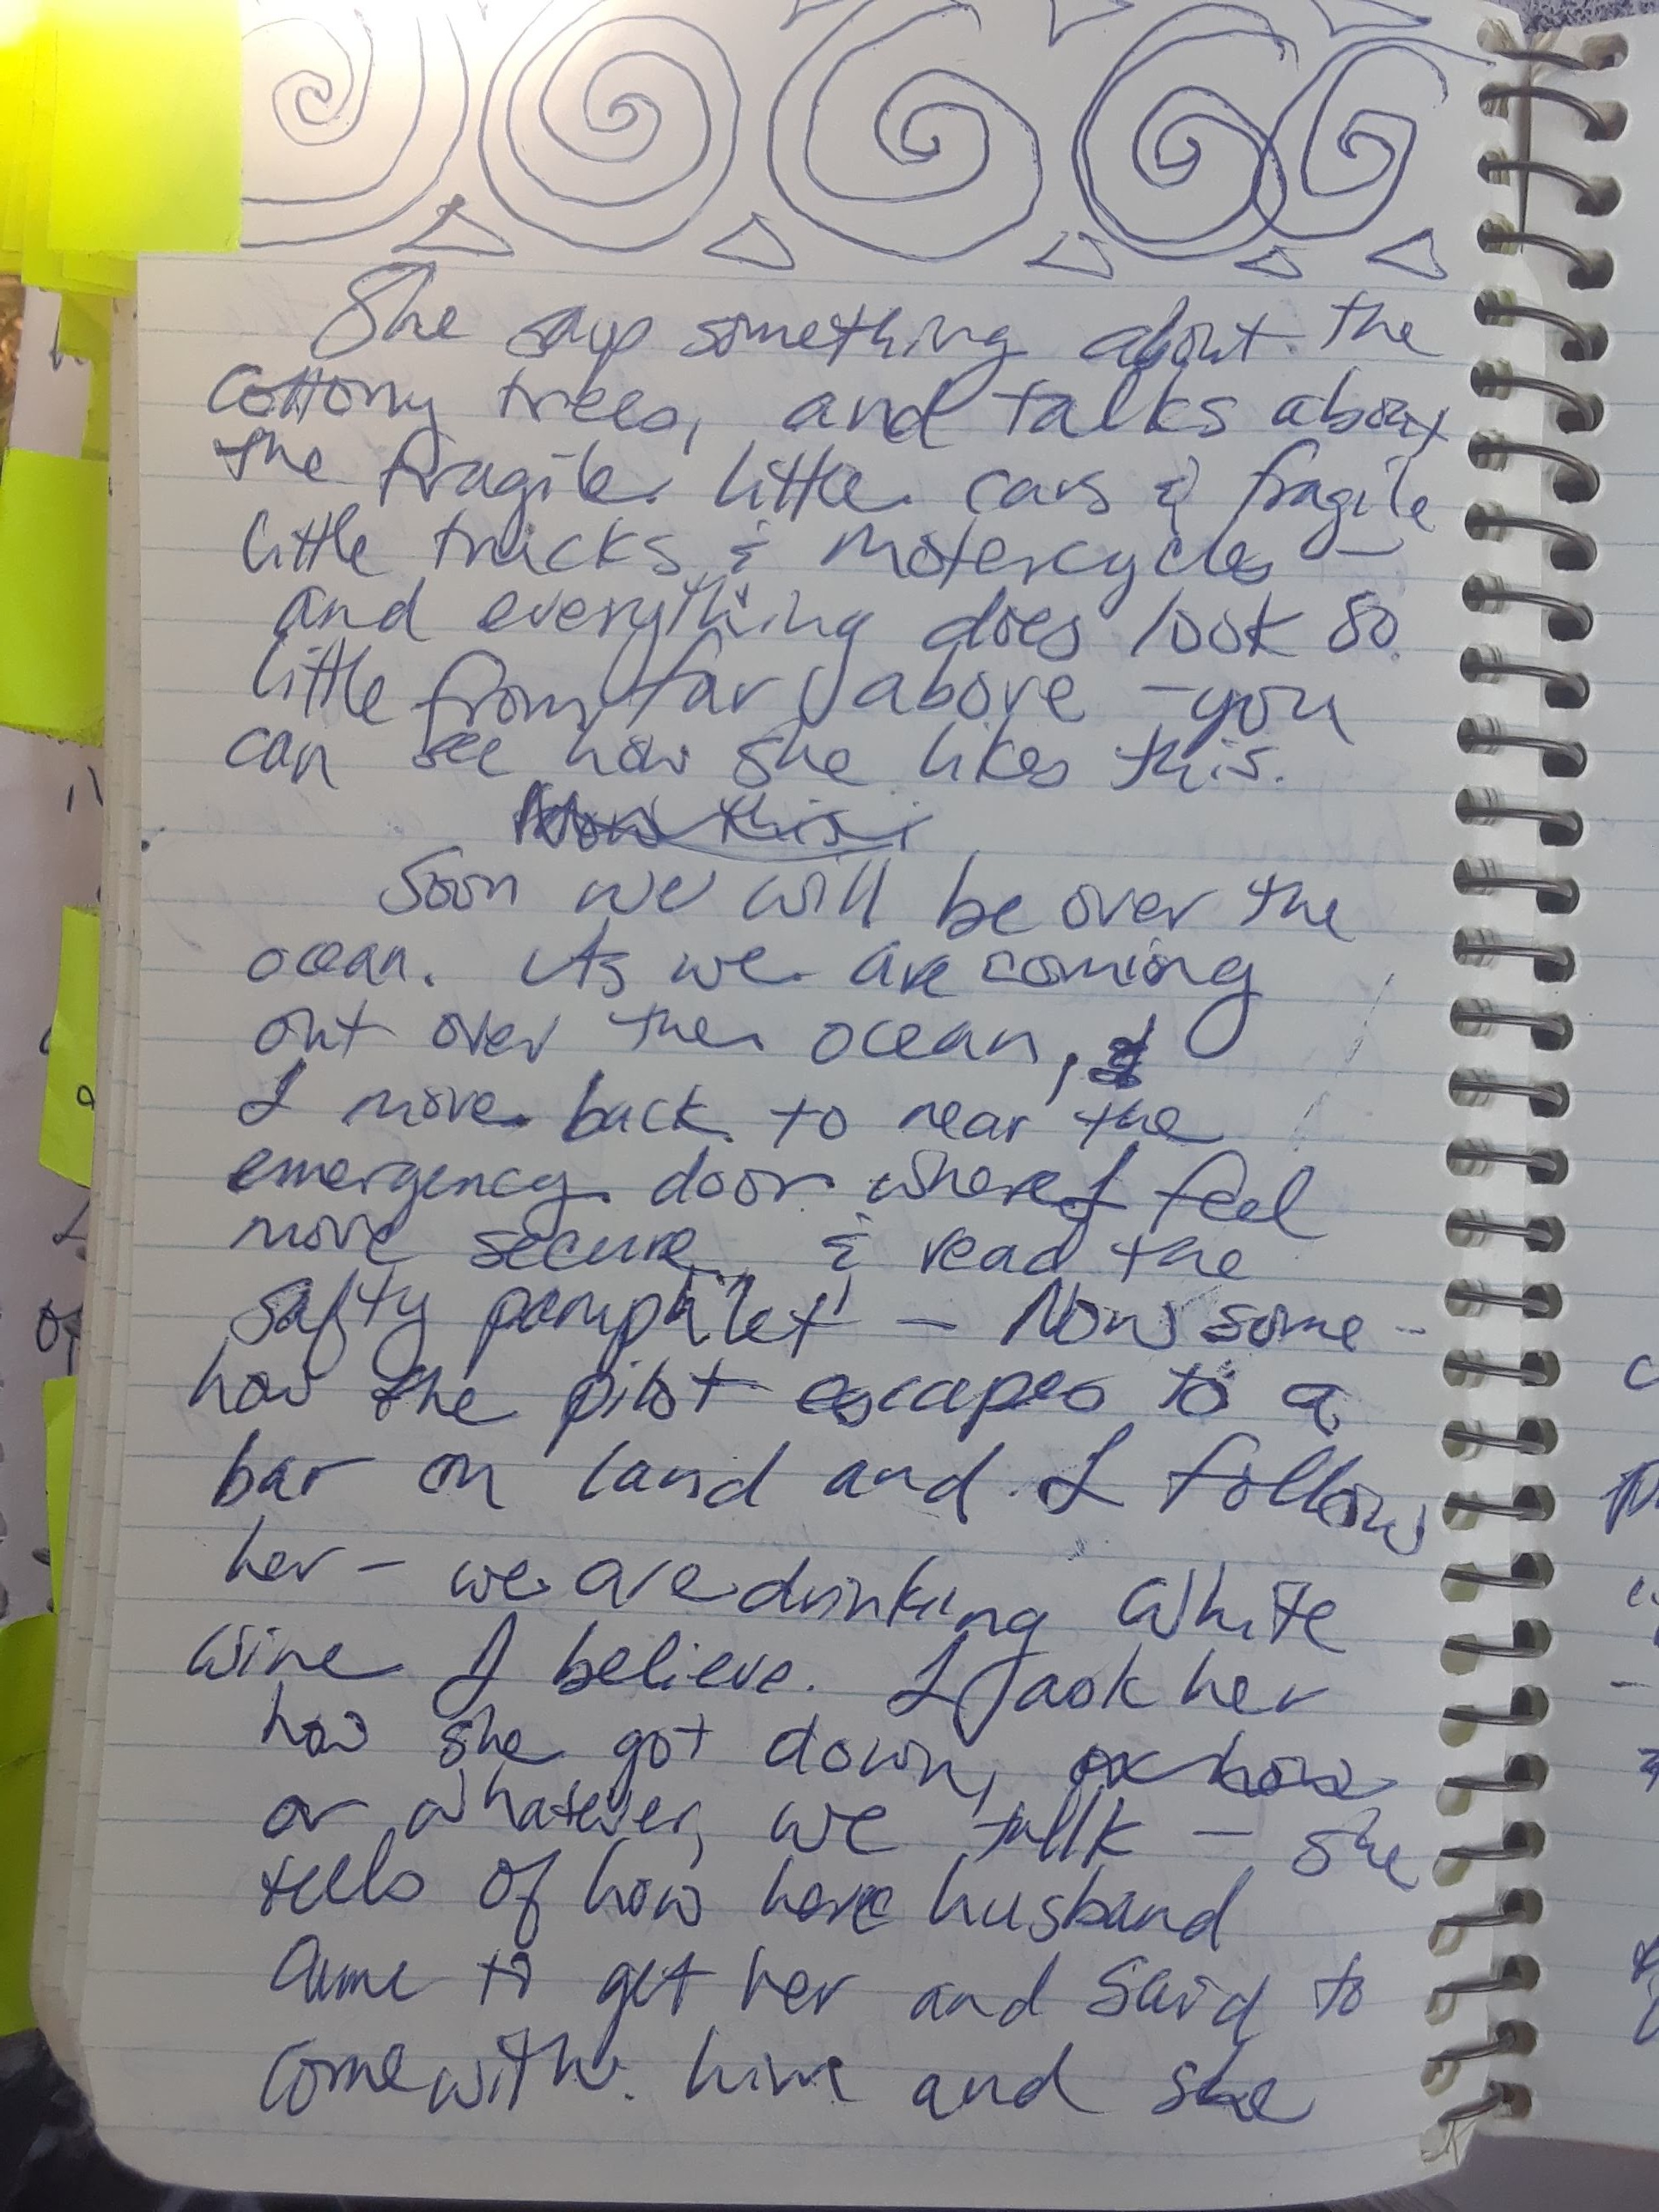 She says something about the
cottony trees, and talks about
the fragile little cars & fragile
little trucks & motercycles —
and everything does look so
little from far above — you
can see how she likes this.
Now this
Soon we will be over the
ocean. As we are coming
out over the ocean, I
I move back to near the
emergency door where I feel
more secure & read the
safty pamphlet — Now some-
how the pilot escapes to a
bar on land and I follow
her — we are drinking white
wine I believe. I ask her
how she got down, or how
or whatever, we talk — she
tells of how her husband
came to get her and said to
come with him and she